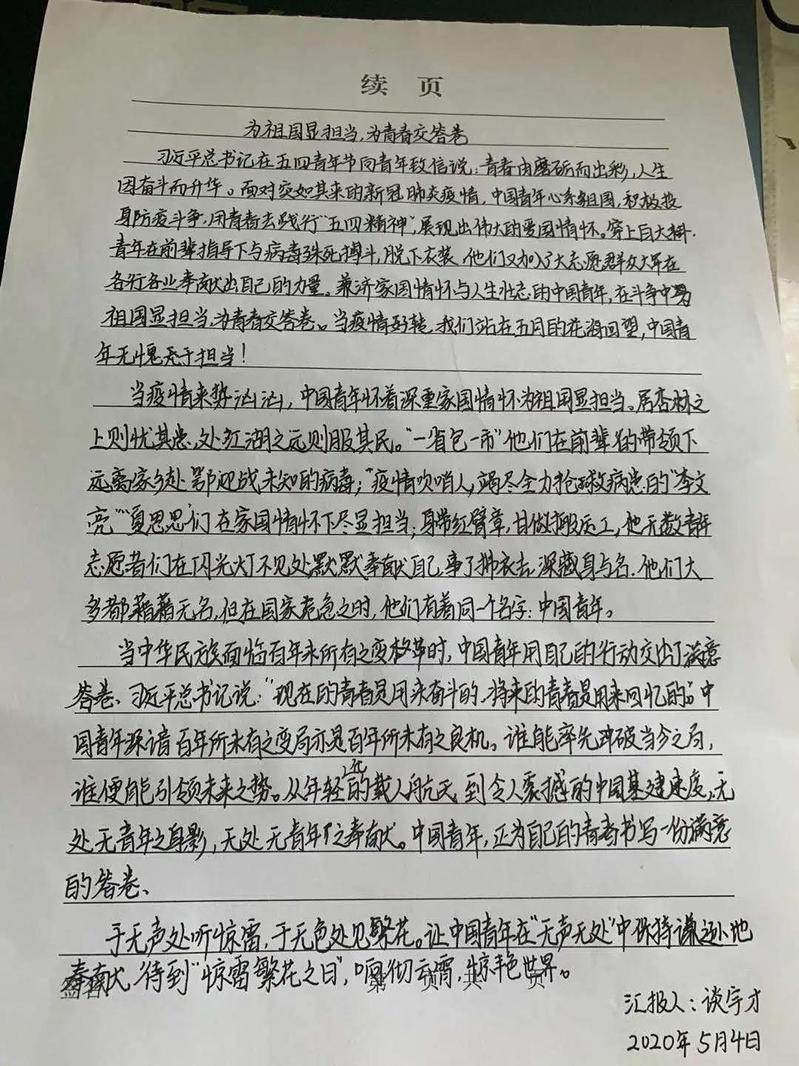 续 页
为祖国显担当,为青春交答卷
习近平总书记在五四青年节向青年致信说:青春由磨砺而出彩,人生
因奋斗而升华。面对突如其来的新冠肺炎疫情,中国青年心系祖国,积极投
身防疫斗争,用青春去践行“五四精神”,展现出伟大的爱国情怀。穿上白大褂,
青年在前辈指导下与病毒殊死搏斗,脱下衣装,他们又加入了大志愿群众大军在
各行各业奉献出自己的力量。兼济家国情怀与人生壮志的中国青年,在斗争中为
祖国显担当,为青春交答卷。当疫情好转,我们站在五月的花海回望,中国青
年无愧于担当!
当疫情来势汹汹,中国青年怀着深重家国情怀为祖国显担当。居杏林之
上则忧其患,处红湖之远则服其民。“一省包一市”他们在前辈的带领下
远离家乡赴鄂迎战未知的病毒;“疫情吹哨人,竭尽全力抢救病患的“李文
亮”“夏思思”们在家国情怀下尽显担当;身带红臂章,甘做搬运工,他无数青年
志愿者们在闪光灯不见处默默奉献自己,事了拂衣去,深藏身与名.他们大
多都籍籍无名,但在国家危急之时,他们有着同一个名字:中国青年。
当中华民族面临百年未所有之变格革时,中国青年用自己的行动交出了满意
答卷、习近平总书记说:“现在的青春是用来奋斗的,将来的青春是用来回忆的。”中
国青年深谙百年所未有之变局亦是百年所未有之良机。谁能率先冲破当今之局,
谁便能引领未来之势。从年轻化的载人航天,到令人震撼的中国基建速度,无
处无青年之身影,无处无青年之奉献。中国青年,正为自己的青春书写一份满意
的答卷、
于无声处听惊雷,于无色处见繁花。让中国青年在“无声无处”中保持谦逊地
奉献,待到“惊雷繁花之日”,响彻云霄,惊艳世界。
第 页 共 页
汇报人:谈宇才
2020年5月4日